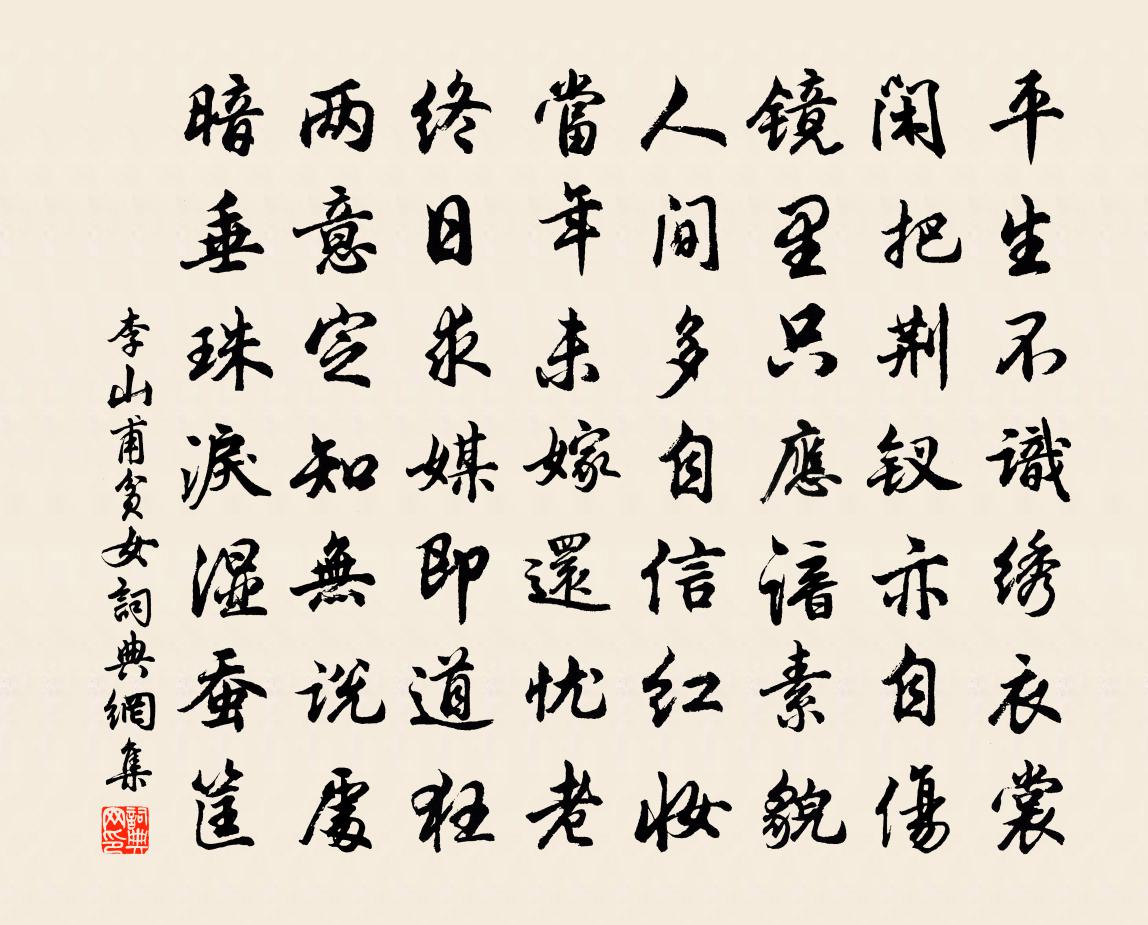 平生不識绣衣裳
闲把荆钗亦自傷
镜里只應谙素貌
人间多自信红妆
當年未嫁還忧老
终日求媒即道狂
两意定知無说處
暗垂珠淚湿蚕筐
李山甫貧女詞典網集
詞典网印